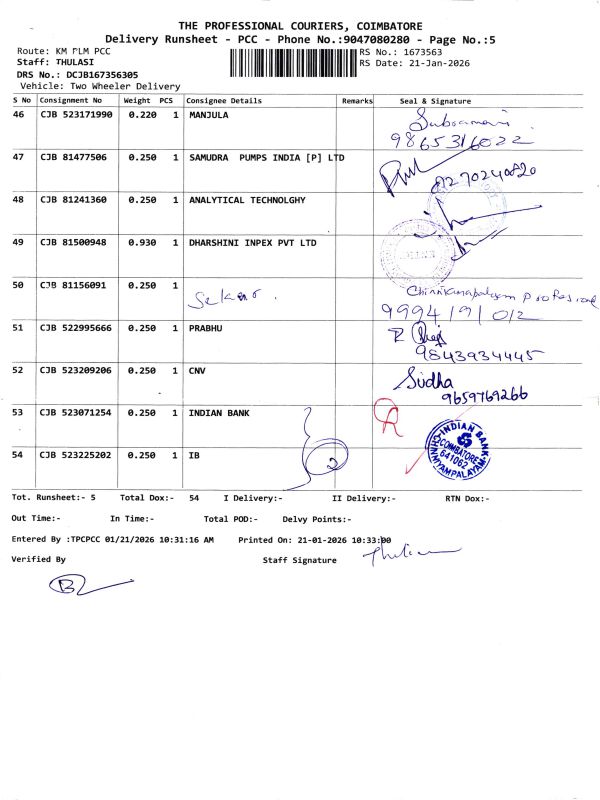 THE PROFESSIONAL COURIERS, COIMBATORE
Delivery Runsheet - PCC - Phone No.:9047080280 - Page No.:5
Route: KM PLM PCC
RS No.: 1673563
Staff: THULASI
RS Date: 21-Jan-2026
DRS No.: DCJB167356305
Vehicle: Two Wheeler Delivery
S No Consignment No Weight PCS Consignee Details Remarks Seal & Signature
46 CJB 523171990 0.220 1 MANJULA
9865316022
47 CJB 81477506 0.250 1 SAMUDRA PUMPS INDIA [P] LTD
48 CJB 81241360 0.250 1 ANALYTICAL TECHNOLGHY
49 CJB 81500948 0.930 1 DHARSHINI INPEX PVT LTD
50 CJB 81156091 0.250 1
51 CJB 522995666 0.250 1 PRABHU
9843934445
52 CJB 523209206 0.250 1 CNV Sudha
9659769266
53 CJB 523071254 0.250 1 INDIAN BANK R
INDIAN BANK
COIMBATORE
641062
CHINNIYAMPALAYAM
54 CJB 523225202 0.250 1 IB 2
Tot. Runsheet:- 5 Total Dox:- 54 I Delivery:- II Delivery:- RTN Dox:-
Out Time:- In Time:- Total POD:- Delvy Points:-
Entered By :TPCPCC 01/21/2026 10:31:16 AM Printed On: 21-01-2026 10:33:00
Verified By Staff Signature